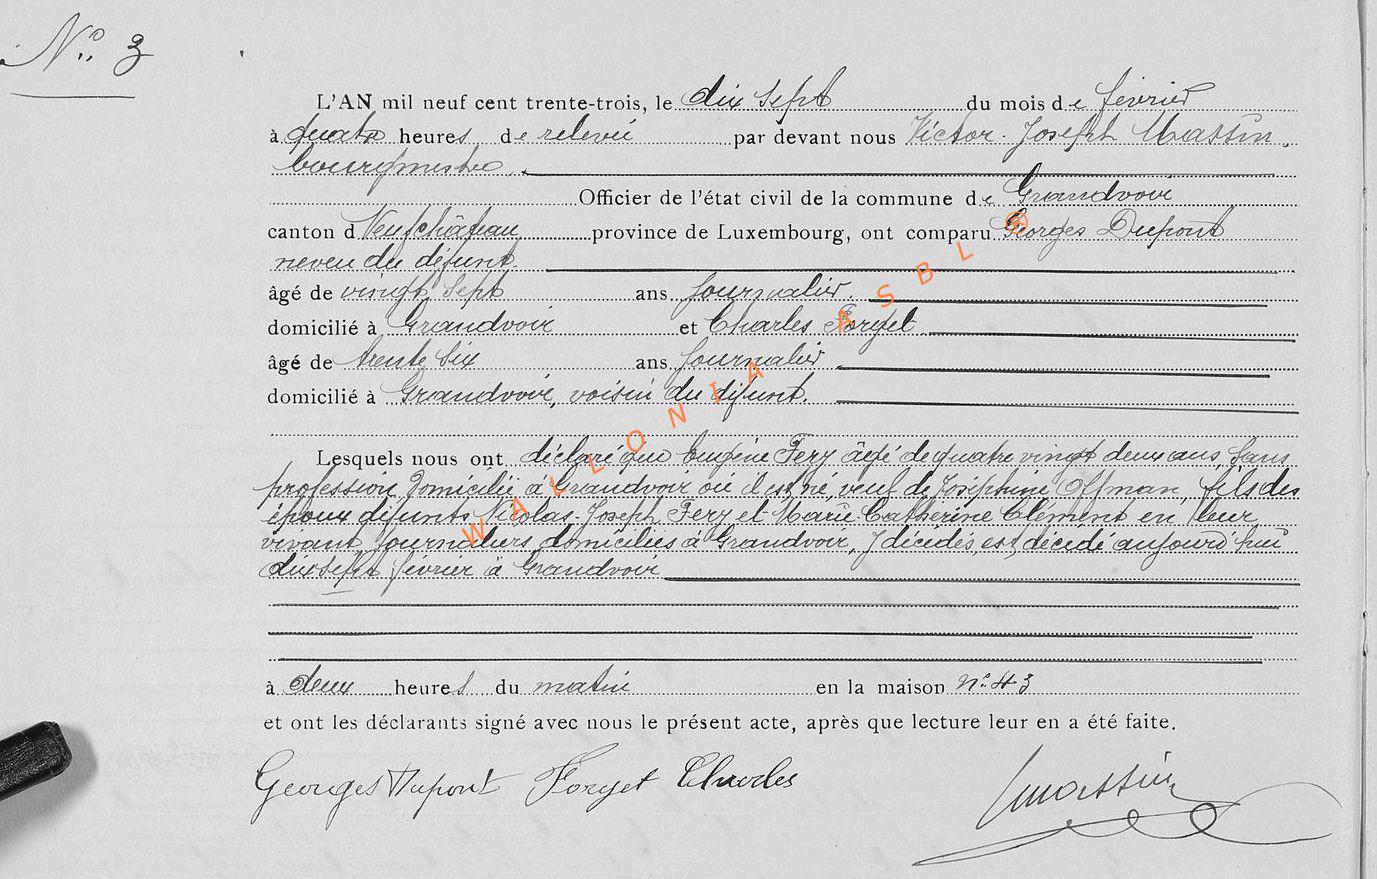 N° 3
L'AN mil neuf cent trente-trois, le dix sept du mois de février
à quatre heures de relevée par devant nous Victor-Joseph Massin,
bourgmestre
Officier de l'état civil de la commune de Grandvoir
canton d Neufchâteau province de Luxembourg, ont comparu Georges Dupont
neveu du défunt
âgé de vingt sept ans journalier.
domicilié à Grandvoir et Charles Forget
âgé de trente six ans journalier
domicilié à Grandvoir, voisin du défunt.
Lesquels nous ont déclaré que Eugène Fery âgé de quatre vingt deux ans, sans
profession domicilié à Grandvoir où il est né, veuf de Joséphine Offman, fils des
époux défunts Nicolas-Joseph Fery et Marie Catherine Clément en leur
vivant journaliers domiciliés à Grandvoir, y décédés, est décédé aujourd'hui
dix sept février à Grandvoir
à deux heures du matin en la maison n° 43
et ont les déclarants signé avec nous le présent acte, après que lecture leur en a été faite.
Georges Dupont Forget Charles Massin
WALLONIA ASBL ®